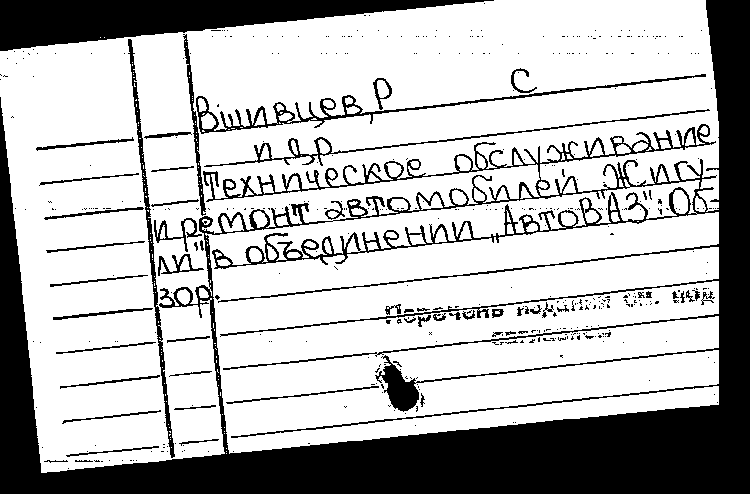 Вшивцев, Р С
и др.
Техническое обслуживание
и ремонт автомобилей Жигу-
ли" в объединении „АвтоВ"АЗ": Об-
зор.
Перечень издания см. под
заглавием